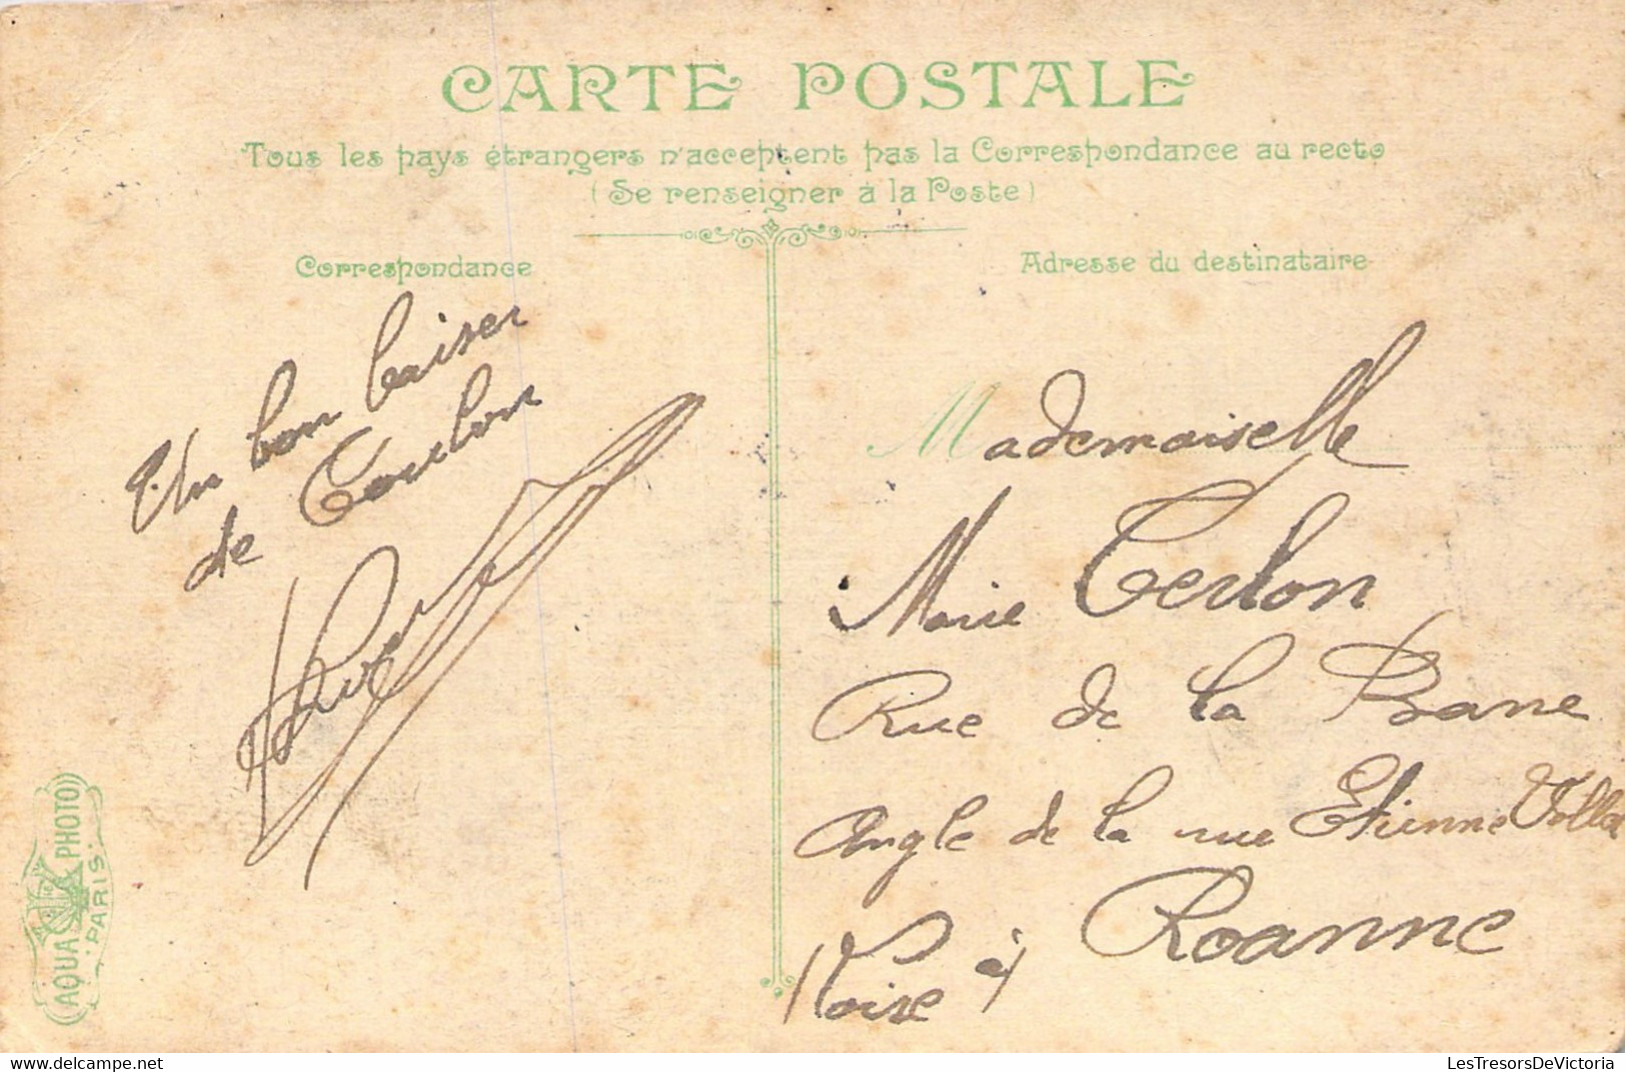 CARTE POSTALE
Tous les pays étrangers n'acceptent pas la Correspondance au recto
(Se renseigner à la Poste)
Correspondance
Adresse du destinataire
Un bon baiser
de Toulon
Mademoiselle
Marie Terlon
Rue de la
Angle de la rue Etienne
(Loire) à Roanne
AQUA PHOTO
PARIS
LesTresorsDeVictoria